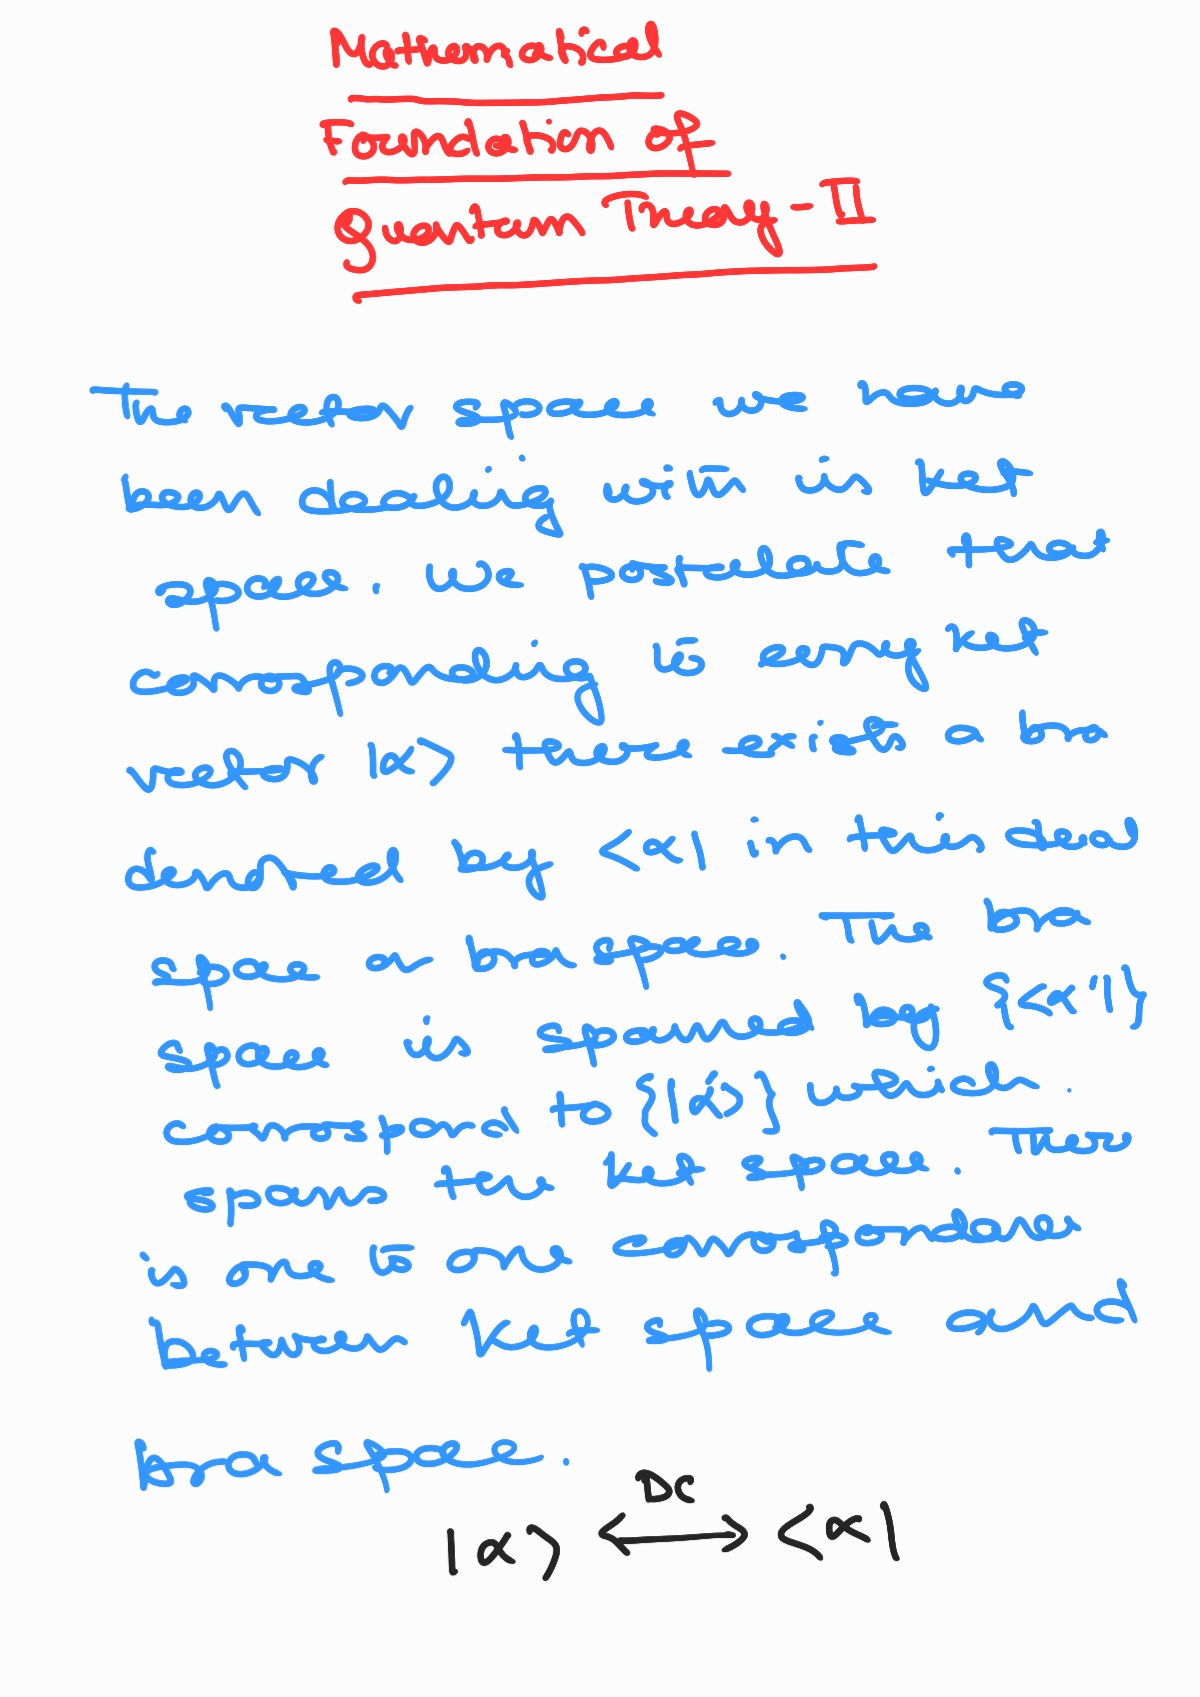 Mathematical
Foundation of
Quantum Theory - II
The vector space we have
been dealing with is ket
space. We postulate that
corresponding to every ket
vector |α> there exists a bra
denoted by <α| in this dual
space or bra space. The bra
space is spanned by {<α'|}
correspond to {|α'>} which
spans the ket space. There
is one to one correspondence
between ket space and
bra space.
DC
|α> ⟷ <α|